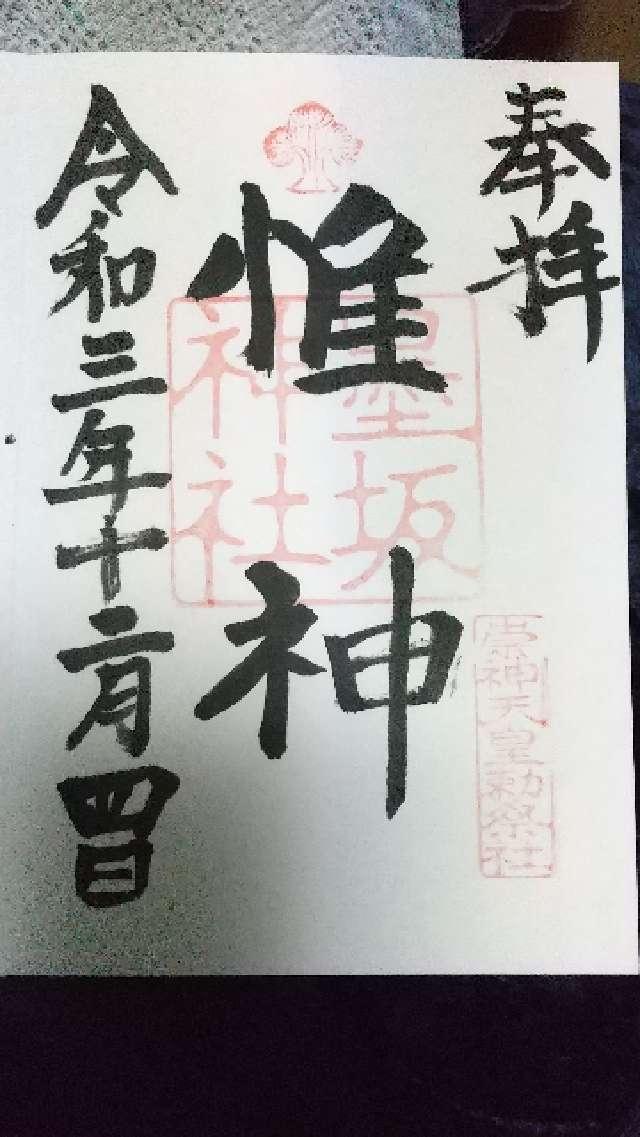 奉拝
崇神天皇勅祭社
惟神
墨坂
神社
令和三年十二月四日